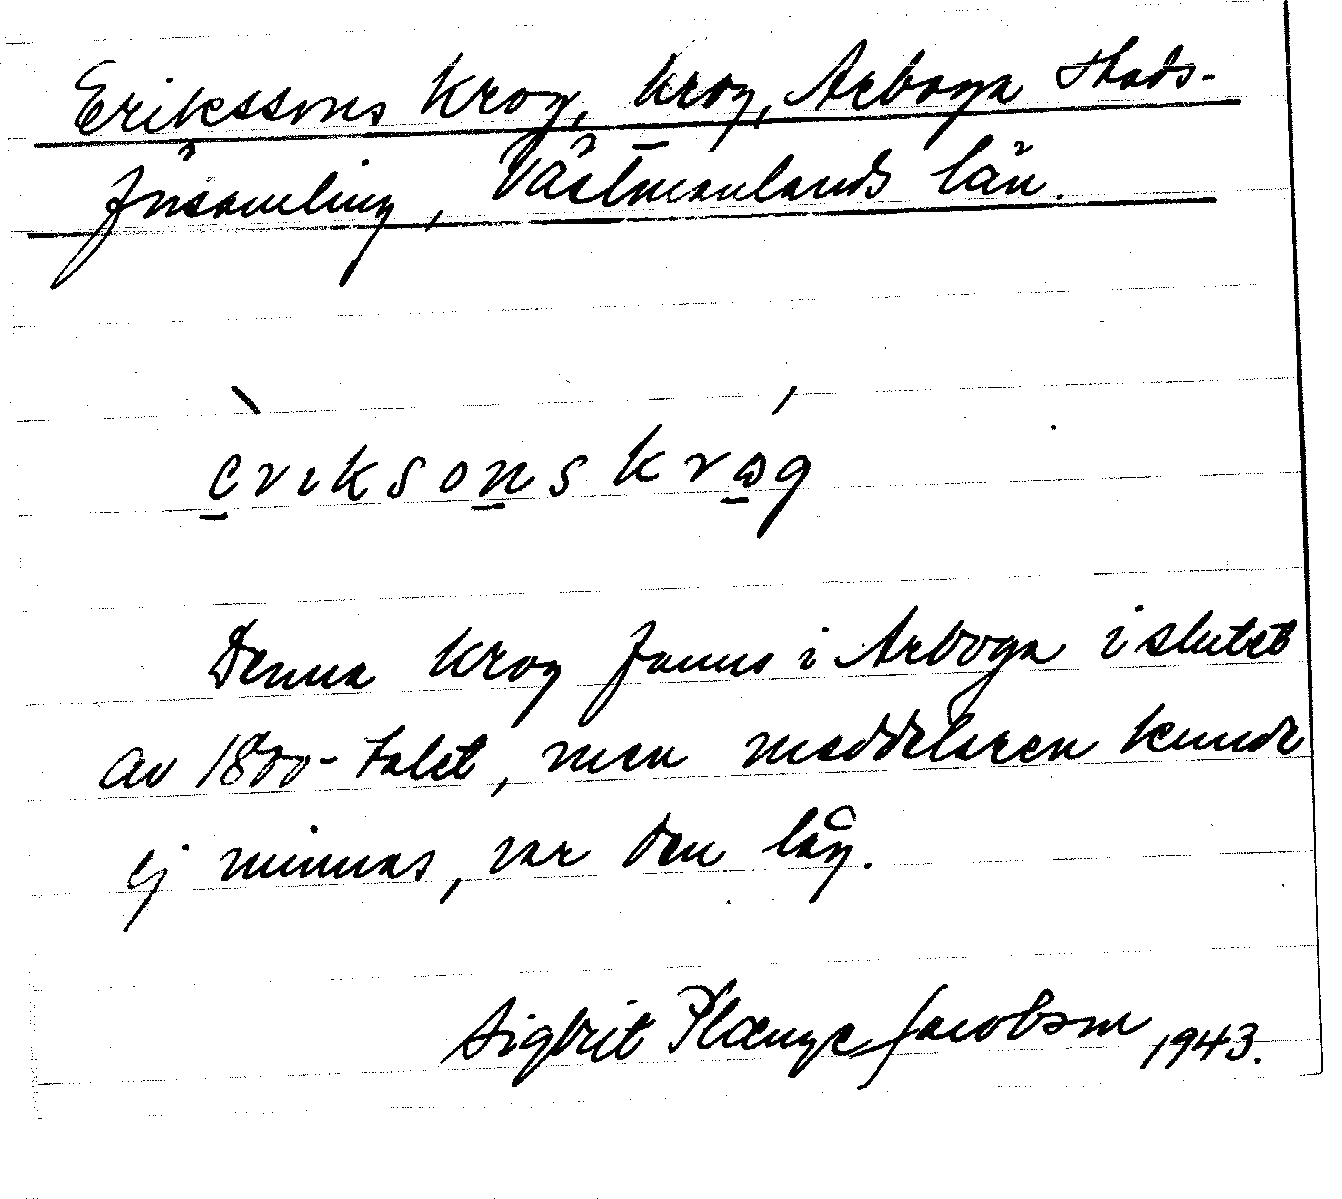 Erikssons Krog, krog, Arboga stads-
församling, Västmanlands län.
èriksonskróg
Denna krog fanns i Arboga i slutet
av 1800-talet, men meddelaren kunde
ej minnas, var den låg.
Sigbrit Plænge Jacobson 1943.